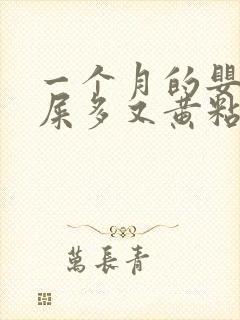 一个月的婴
屎多又黄黏
萬長青